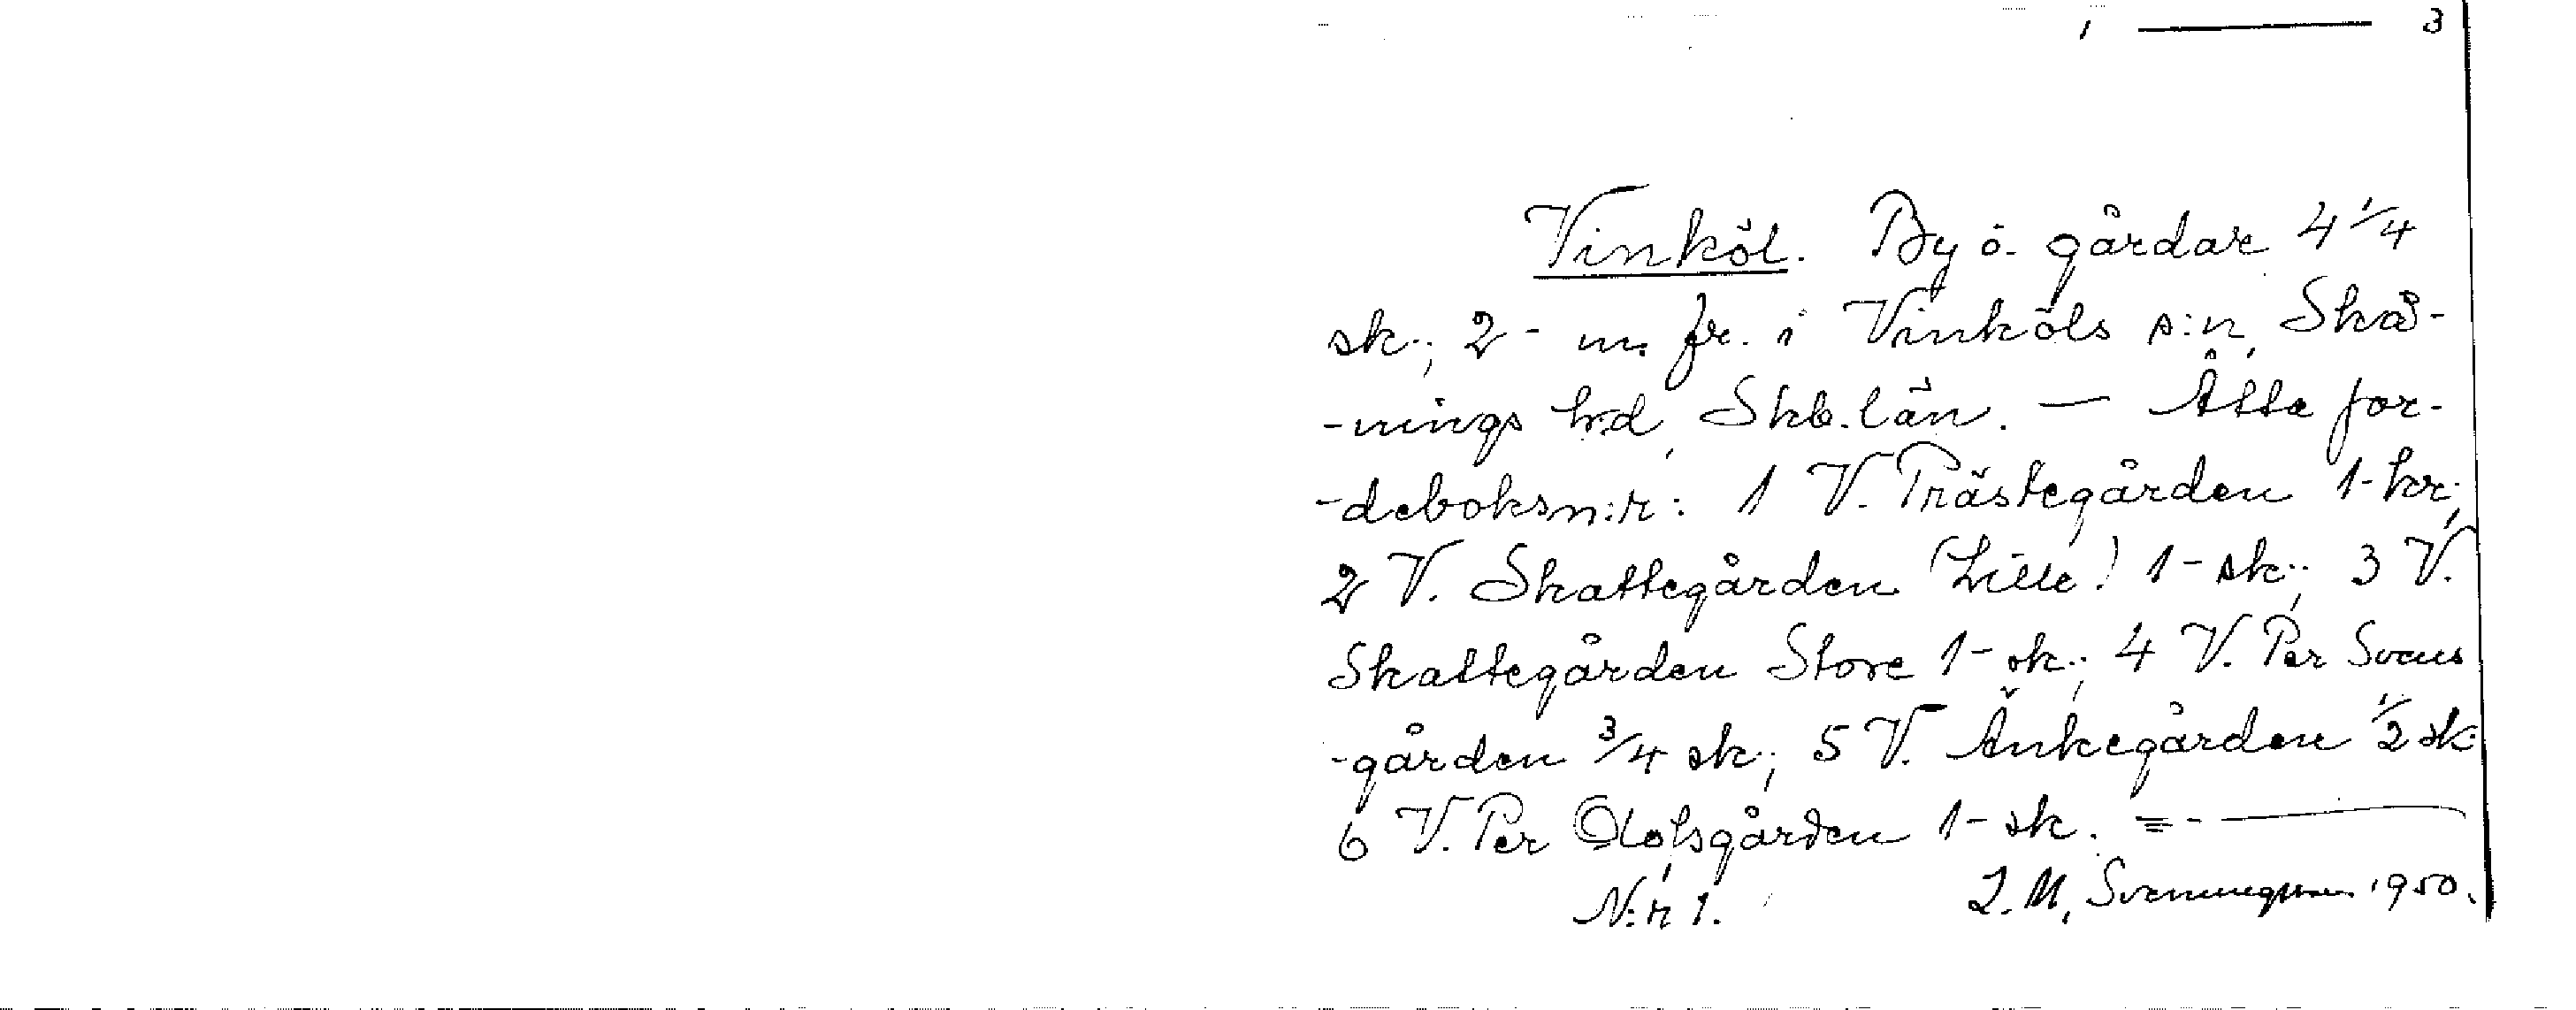 1 — 3
Vinköl. By o. gårdar 4 1/4
sk.; 2 - m. fr. i Vinköls s:n, Skå-
-nings hrd, Skb. län. — Åtta jor-
-deboksn:r: 1 V. Prästegården 1 - kr.;
2 V. Skattegården (Lille) 1 - sk.; 3 V.
Skattegården Store 1 - sk.; 4 V. Per Svens
-gården 3/4 sk.; 5 V. Änkegården 1/2 sk.
6 V. Per Olofsgården 1 - sk. = - —
N:r 1. J. M. Svenningsson 1950.